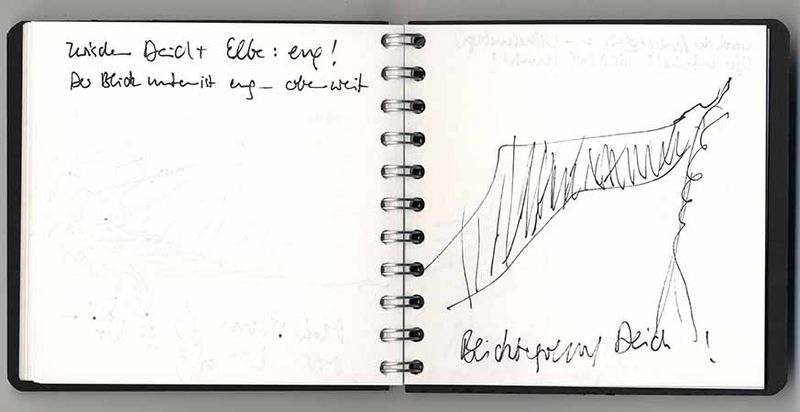 Zwischen Deich + Elbe: eng!
Der Blick unten ist eng – oben weit
Blickbegrenzung Deich !